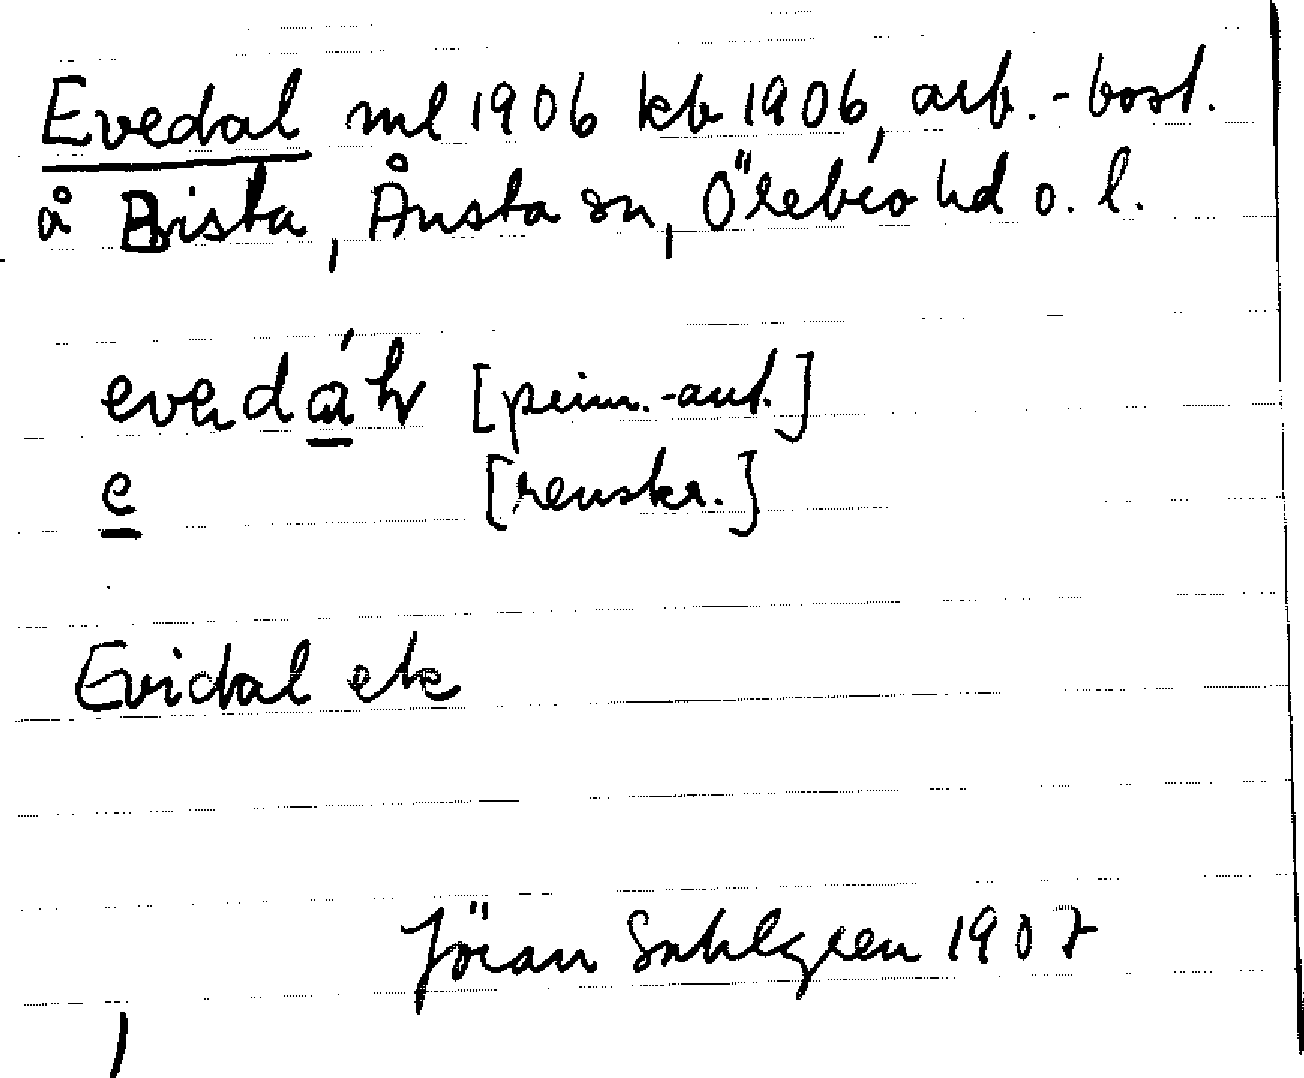 Evedal ml 1906 kb 1906, arb.-bost.
å Brista, Ånsta sn, Örebro hd o. l.
evedáh [prim.-ant.]
e [renskr.]
Evidal ek
Jöran Sahlgren 1907